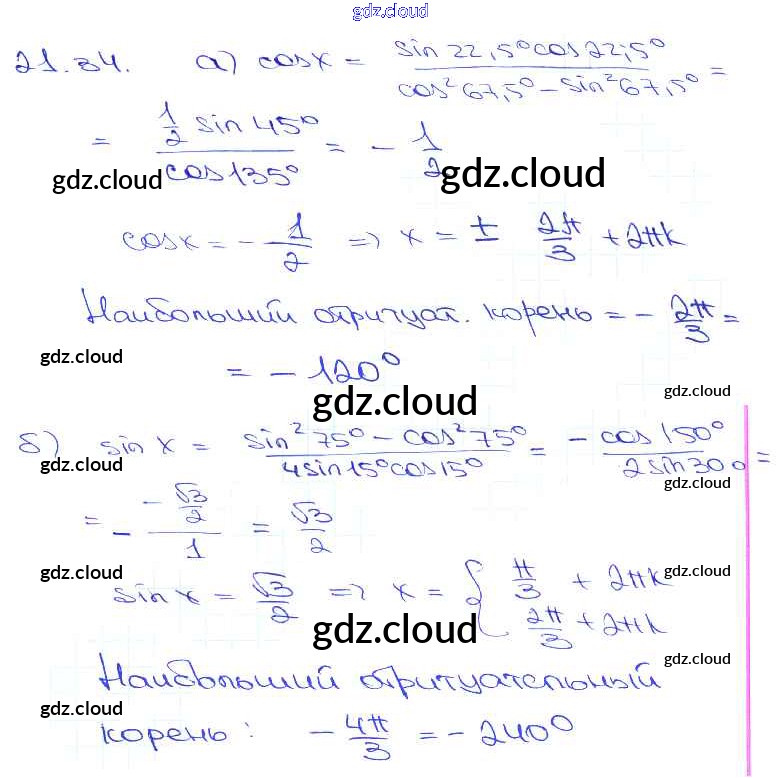 gdz.cloud
21.34. а) cosx = sin22,5°cos22,5° / cos²67,5° - sin²67,5° =
= 1/2 sin45° / cos135° = - 1/2
gdz.cloud gdz.cloud
cosx = - 1/2 => x = ± 2π/3 + 2πk
Наибольший отрицат. корень = - 2π/3 =
gdz.cloud
= - 120°
gdz.cloud gdz.cloud
б) sin x = sin²75° - cos²75° / 4sin15°cos15° = - cos150° / 2sin30° =
gdz.cloud gdz.cloud
= - -√3/2 / 1 = √3/2
gdz.cloud gdz.cloud
sin x = √3/2 => x = { π/3 + 2πk
2π/3 + 2πk
gdz.cloud
gdz.cloud
Наибольший отрицательный
gdz.cloud
корень: - 4π/3 = - 240°